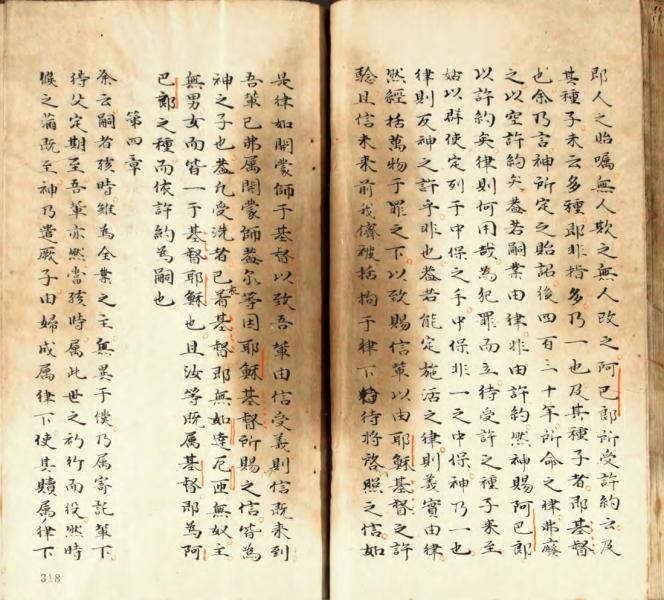 即人之貽囑無人欺之無人改之阿巴郎所受許約云及
其種子未云多種即非指多乃一也及其種子者即基督
也余乃言神所定之貽詔後四百三十年所命之律弗廢
之以空許約矣葢若嗣業由律非由許約然神賜阿巴郎
以許約矣律則何用哉為犯罪而立待受許之種子来至
姑以群使定列于中保之手中保非一之中保神乃一也
律則反神之許乎非也葢若能定施活之律則義實由律
然經括萬物于罪之下以致賜信輩以由耶穌基督之許
騐且信未来前我儕被括拘于律下待将啓照之信如
是律如開蒙師于基督以致吾輩由信受義則信既来到
吾輩已弗属開蒙師葢尔等因耶穌基督所賜之信皆為
神之子也葢凡受洗者已着衣基督即無如達厄匝無奴主
無男女而皆一于基督耶穌也且汝等既属基督即為阿
巴郎之種而依許約為嗣也
第四章
余云嗣者孩時雖為全業之主無異于僕乃属寄託輩下
待父定期至吾輩亦然當孩時属此世之礿行而役然時
候之滿既至神乃遣厥子由婦成属律下使其贖属律下
318